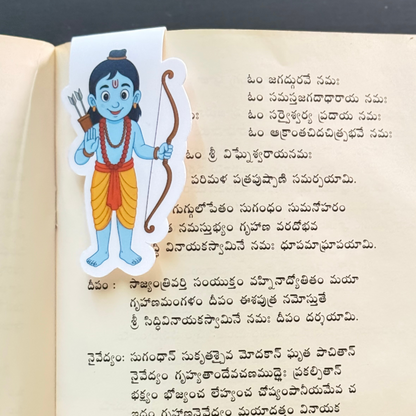 ఓం జగద్గురవే నమః
ఓం సమస్తజగదాధారాయ నమః
ః ఓం సర్వైశ్వర్య ప్రదాయ నమః
ఓం ఆక్రాంతచిదచిత్ప్రభవే నమః
ఓం శ్రీ విఘ్నేశ్వరాయనమః
పరిమళ పత్రపుష్పాణి సమర్పయామి.
గుగ్గులోపేతం సుగంధం సుమనోహరం
నమస్తుభ్యం గృహాణ వరదోభవ
వినాయకస్వామినే నమః ధూపమాఘ్రాపయామి.
దీపం : సాజ్యంత్రివర్తి సంయుక్తం వహ్నినాద్యోతితం మయా
గృహాణమంగళం దీపం ఈశపుత్ర నమోస్తుతే
శ్రీ సిద్ధివినాయకస్వామినే నమః దీపం దర్శయామి.
నైవేద్యం: సుగంధాన్ సుకృతశ్చైవ మోదకాన్ ఘృత పాచితాన్
నైవేద్యం గృహ్యతాందేవచణముద్గైః ప్రకల్పితాన్
భక్ష్యం భోజ్యంచ లేహ్యంచ చోష్యంపానీయమేవ చ
ఇదం గృహాణనైవేద్యం మయాదత్తం వినాయక